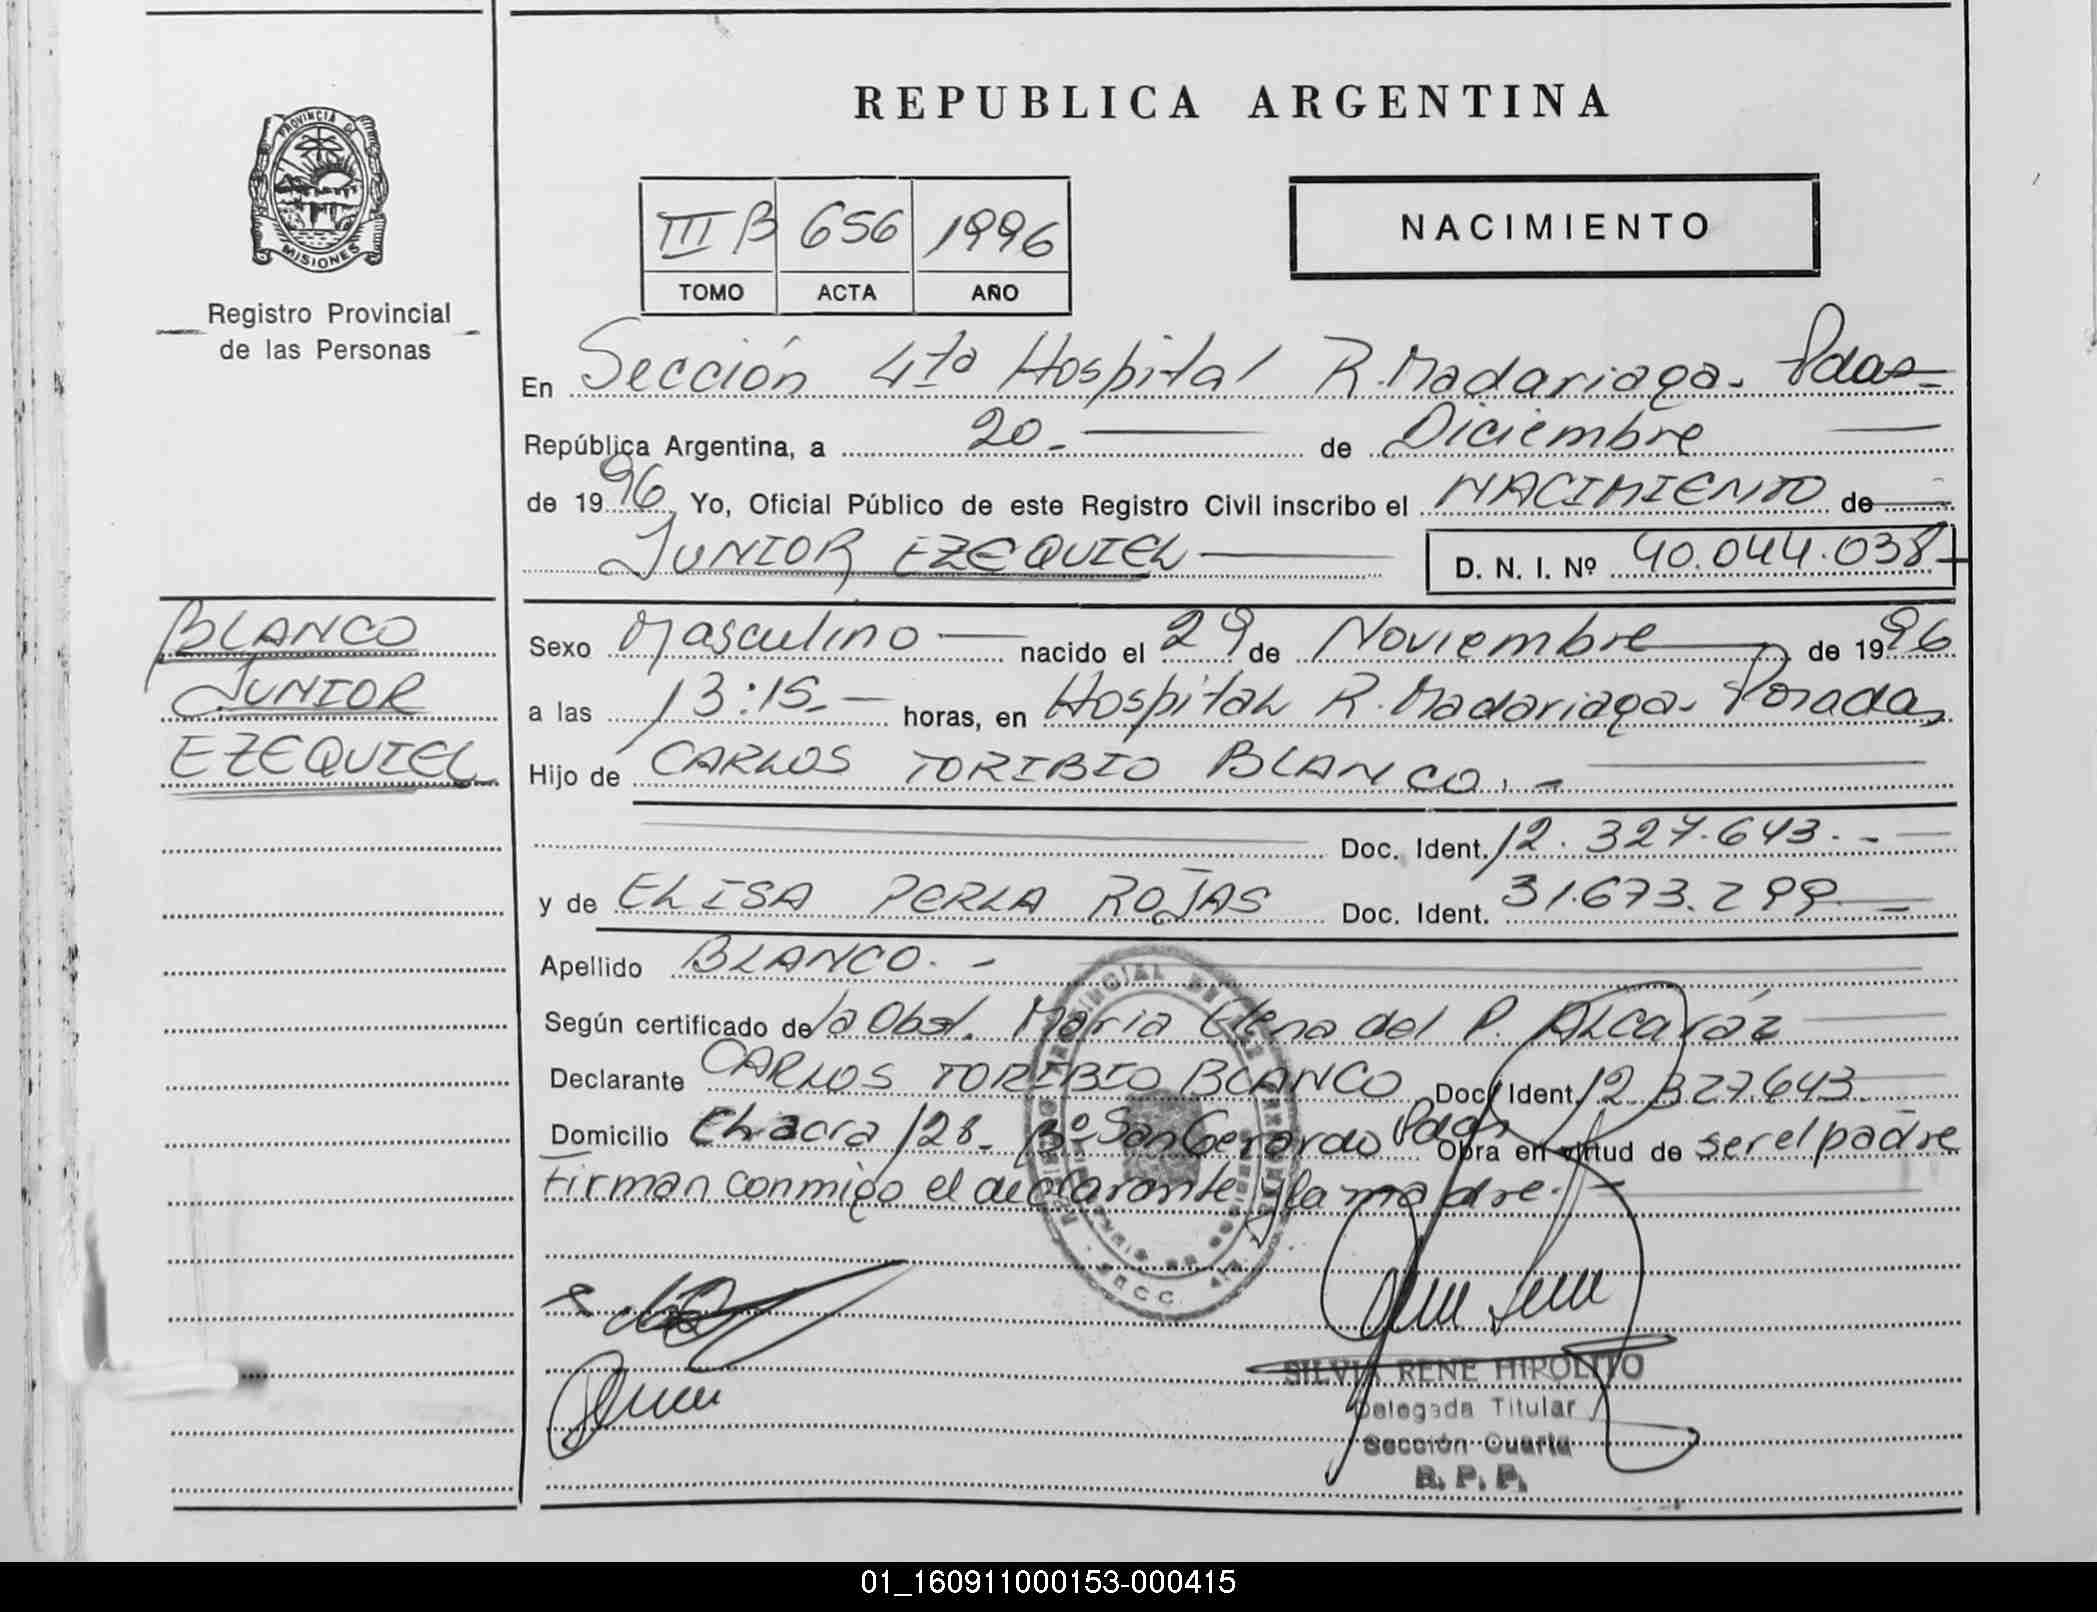 REPUBLICA ARGENTINA
PROVINCIA DE
MISIONES
Registro Provincial
de las Personas
III B 656 1996
TOMO ACTA AÑO
NACIMIENTO
En Sección 4ta Hospital R. Madariaga. Pdas
República Argentina, a 20.- de Diciembre
de 1996 Yo, Oficial Público de este Registro Civil inscribo el NACIMIENTO de
JUNIOR EZEQUIEL D. N. I. Nº 40.044.038
BLANCO
JUNIOR
EZEQUIEL
Sexo Masculino nacido el 29 de Noviembre de 1996
a las 13:15.- horas, en Hospital R. Madariaga. Posadas
Hijo de CARLOS TORIBIO BLANCO.-
Doc. Ident. 12.327.643.-
y de ELISA PERLA ROJAS Doc. Ident. 31.673.299
Apellido BLANCO.-
Según certificado de la Obst. Maria Elena del P. Alcaráz
Declarante CARLOS TORIBIO BLANCO Doc. Ident. 12.327.643.
Domicilio Chacra 128- Bº San Gerardo Pdas Obra en virtud de ser el padre
Firman conmigo el declarante y la madre.-
SILVIA RENE HIPOLITO
Delegada Titular
Sección Cuarta
R. P. P.
01_160911000153-000415